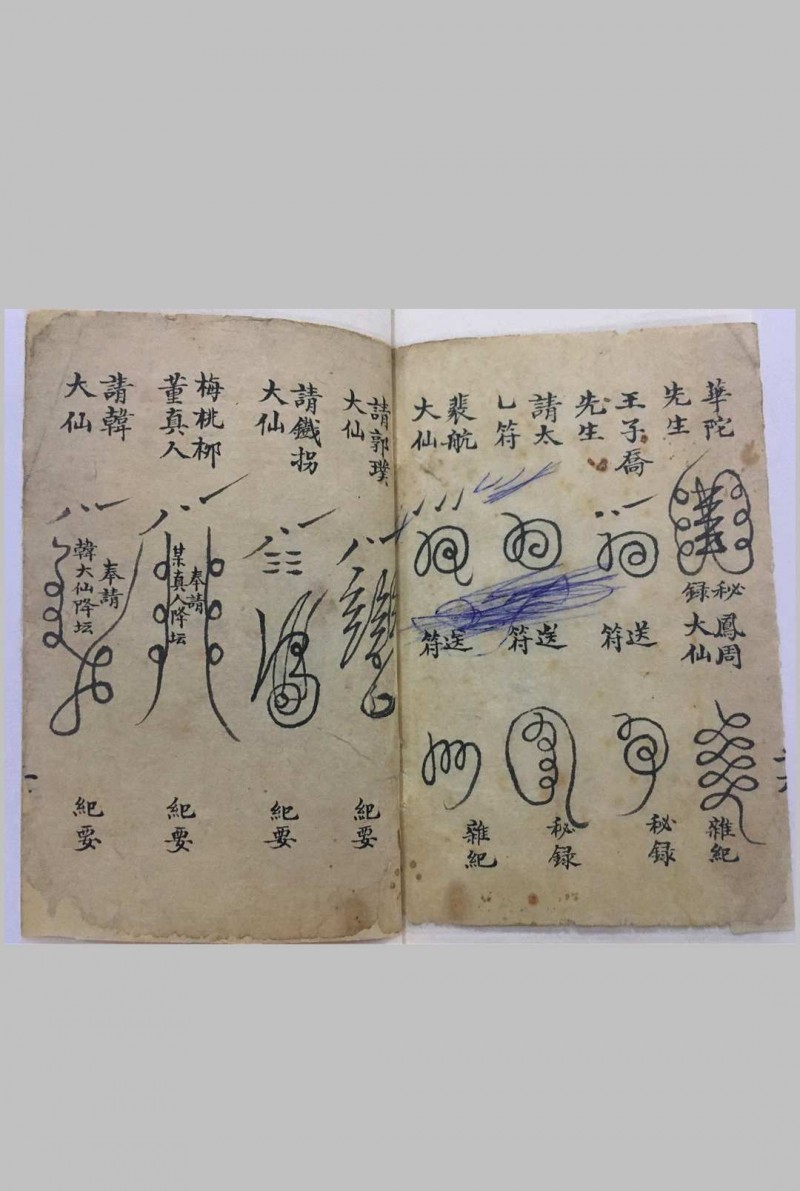 華陀
先生
秘錄
鳳周
大仙
雜紀
王子喬
先生
送符
秘録
請太
乚符
送符
秘録
裴航
大仙
送符
雜紀
請郭璞
大仙
紀要
請鐵拐
大仙
紀要
梅桃柳
董真人
奉請
某真人降坛
紀要
請韓
大仙
奉請
韓大仙降坛
紀要